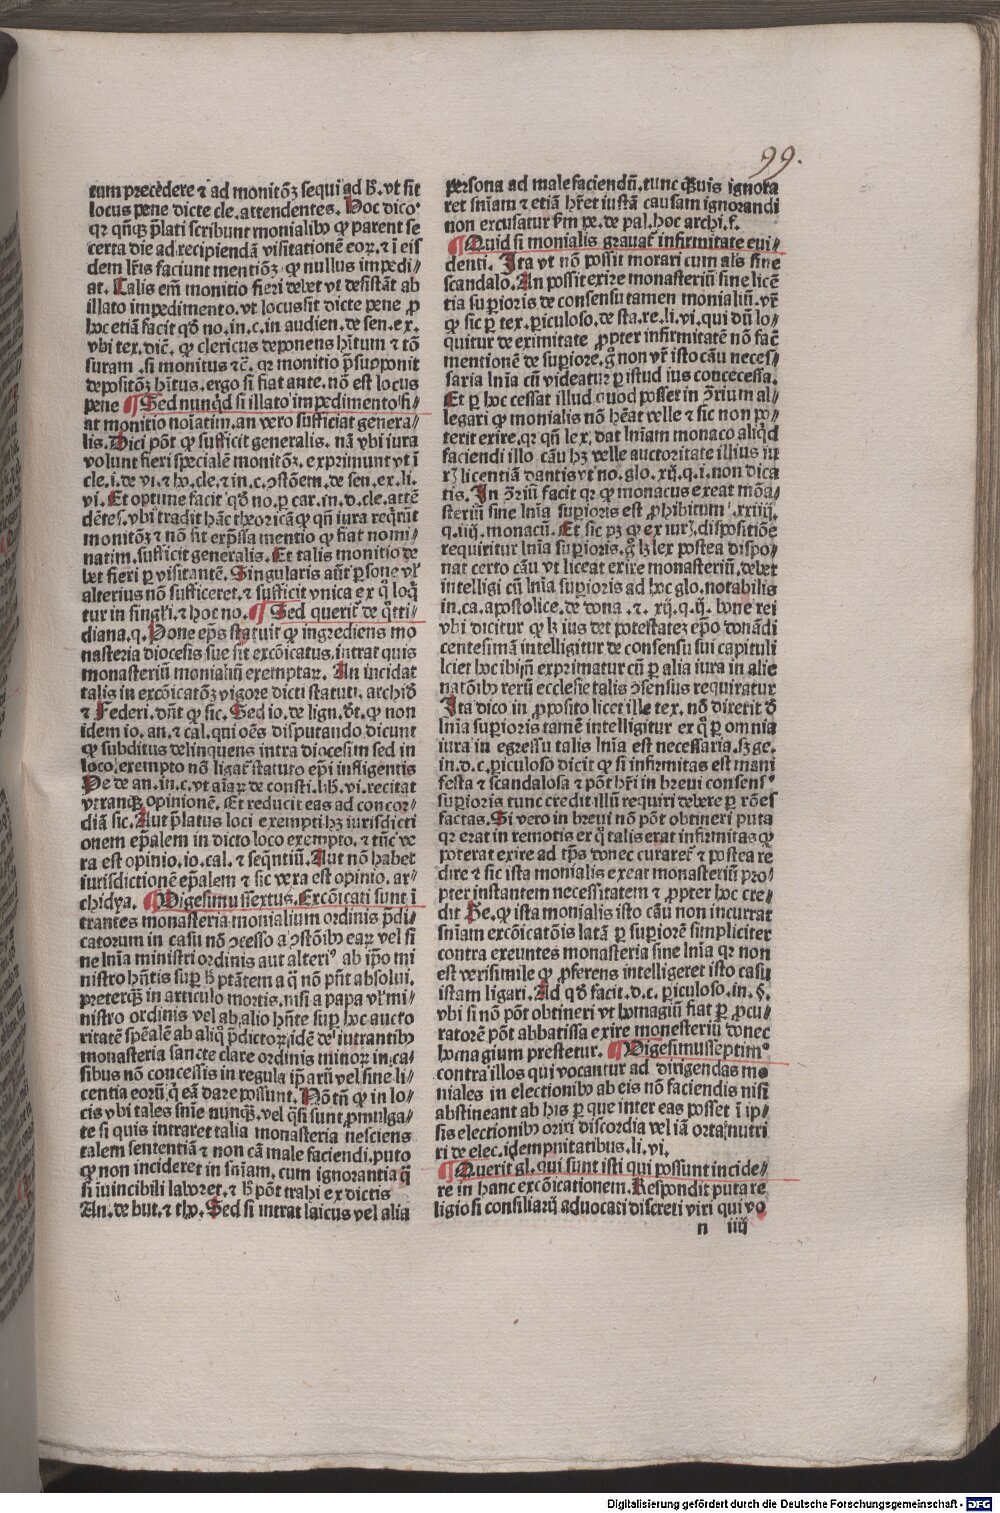 99.
tum precedere ⁊ ad monitōꝫ sequi ad ß. vt sit
locus pene dicte cle. attendentes. Hoc dico
qꝛ qñqꝫ p̄lati scribunt monialibꝰ ꝙ parent se
certa die ad recipiendā visitationē eoꝝ. ⁊ ī eis
dem lr̄is faciunt mentiōꝫ ꝙ nullus impedi⸗
at. Talis em̄ monitio fieri debet vt desistāt ab
illato impedimento. vt locus sit dicte pene ꝓ
hoc etiā facit qđ no. in. c. in audien. de sen. ex.
vbi tex. dic̄. ꝙ clericus deponens hītum ⁊ tō
suram. si monitus ⁊c̄. qꝛ monitio p̄supponit
depositōꝫ hītus. ergo si fiat ante. nō est locus
pene ¶ Sed nunqͥd si illato impedimento fi⸗
at monitio noīatim. an vero sufficiat genera⸗
lis. Dici pōt ꝙ sufficit generalis. nā vbi iura
volunt fieri specialē monitōꝫ. exprimunt vt ī
cle. i. de vi. ⁊ ho. cle. ⁊ in. c. ꝯstōem. de sen. ex. li.
vi. Et optune facit qđ no. ꝑ car. in. d. cle. attē
dētes. vbi tradit hāc theoricā ꝙ qñ iura reqͥrūt
monitōꝫ ⁊ nō fit exp̄ssa mentio ꝙ fiat nomi⸗
natim. sufficit generalis. Et talis monitio de
bet fieri ꝑ visitantē. Singularis aūt ꝑsone vl̄
alterius nō sufficeret. ⁊ sufficit vnica ex ꝗ̊ loqͥ
tur in singl̄i. ⁊ hoc no. ¶ Sed querit̄ de q̊tti⸗
diana. q. Pone ep̄s statuit ꝙ ingrediens mo
nasteria diocesis sue sit excōicatus. intrat quis
monasteriū monialiū exemptaꝝ. An incidat
talis in excōicatōꝫ vigore dicti statuti. archiđ
⁊ Federi. dn̄t ꝙ sic. Sed io. de lign. đt. ꝙ non
idem io. an. ⁊ cal. qui oēs disputando dicunt
ꝙ subditus delinquens intra diocesim sed in
loco exempto nō ligat̄ statuto ep̄i infligentis
Pe de an. in. c. vt aīaꝝ de consti. li. vi. recitat
vtranqꝫ opinionē. Et reducit eas ad concor⸗
diā sic. Aut p̄latus loci exempti hꝫ iurisdicti
onem ep̄alem in dicto loco exempto. ⁊ tūc ve
ra est opinio. io. cal. ⁊ seqn̄tiū. Aut nō habet
iurisdictionē ep̄alem ⁊ sic vera est opinio. ar⸗
chidya. ¶ Vigesimussextus. Excōicati sunt ī
trantes monasteria monialium ordinis p̄di⸗
catorum in casu nō ꝯcesso a ꝯstōibꝰ eaꝝ vel si
ne lnīa ministri ordinis aut alteriꝰ ab ip̄o mi
nistro hn̄tis suꝑ ß ptātem a q̄ nō pn̄t absolui.
preterqꝫ in articulo mortis. nisi a papa vl̄ mi⸗
nistro ordinis vel ab alio hn̄te suꝑ hoc aucto
ritatē spēalē ab aliqͦ p̄dictoꝝ. idē de ītrantibꝰ
monasteria sancte clare ordinis minoꝝ in ca⸗
sibus nō concessis in regula ip̄aꝝ vel sine li⸗
centia eorū q̄ eā dare possunt. Nōtn̄ ꝙ in lo⸗
cis vbi tales sn̄ie nunqꝫ. vel qͣsi sunt ꝓmulga⸗
te si quis intraret talia monasteria nesciens
talem sententiā ⁊ non cā male faciendi. puto
ꝙ non incideret in sn̄iam. cum ignorantia q̄
si īuincibili laboret. ⁊ ß pōt trahi ex dictis
An. de but. ⁊ tho. Sed si intrat laicus vel alia
persona ad male faciendū. tunc qͣꝫuis ignora
ret sn̄iam ⁊ etiā hr̄et iustā causam ignorandi
non excusatur ẜm pe. de pal. hoc archi. f.
¶ Quid si monialis grauat̄ infirmitate eui⸗
denti. Ita vt nō possit morari cum alīs sine
scandalo. An possit exire monasteriū sine licē
tia suꝑioris de consensu tamen monialiū. vr̄
ꝙ sic ꝑ tex. ꝑiculoso. de sta. re. li. vi. qui dū lo⸗
quitur de eximitate ꝓpter infirmitatē nō fac̄
mentionē de suꝑiore. ḡ non vr̄ isto cāu neces⸗
saria lnīa cū videatur ꝑ istud ius concecessa.
Et ꝑ hoc cessat illud quod posset in ꝯ̄rium al⸗
legari ꝙ monialis nō hēat velle ⁊ sic non po⸗
terit exire. qꝛ qñ lex. dat lnīam monaco aliqͥd
faciendi illo cāu hꝫ velle auctoritate illius iu
rꝭ licentiā dantis vt no. glo. xij. q. i. non dica
tis. In ꝯ̄riū facit qꝛ ꝙ monacus exeat mōa⸗
steriū sine lnīa suꝑioris est ꝓhibitum. xxiiij.
q. iiij. monacū. Et sic pꝫ ꝙ ex iurꝭ dispositiōe
requiritur lnīa suꝑioris. ḡ lꝫ lex postea dispo⸗
nat certo cāu vt liceat exire monasteriū. debet
intelligi cū lnīa suꝑioris ad hoc glo. notabilis
in. ca. apostolice. de dona. ⁊. xij. q. ij. bone rei
vbi dicitur ꝙ lꝫ ius det potestatez ep̄o donādi
centesimā intelligitur de consensu sui capituli
lꝫciet hoc ibīm̄ exprimatur cū ꝑ alia iura in alie
natōibꝰ rerū ecclesie talis ꝯsensus requiratur
Ita dico in ꝓposito licet ille tex. nō dixerit đ
lnīa suꝑioris tamē intelligitur ex ꝗ̊ ꝑ omnia
iura in egressu talis lnīa est necessaria. sꝫ ge.
in. d. c. ꝑiculoso dicit ꝙ si infirmitas est mani
festa ⁊ scandalosa ⁊ pōt hr̄i in breui consensꝰ
suꝑioris tunc credit illū requiri debere ꝑ rōes
factas. Si vero in breui nō pōt obtineri puta
qꝛ erat in remotis ex ꝗ̊ talis erat infirmitas ꝙ
poterat exire ad tp̄s donec curaret̄ ⁊ postea re
dire ⁊ sic ista monialis exeat monasteriū pro⸗
pter instantem necessitatem ⁊ ꝓpter hoc cre⸗
dit Pe. ꝙ ista monialis isto cāu non incurrat
sn̄iam excōicatōis latā ꝑ suꝑiorē simpliciter
contra exeuntes monasteria sine lnīa qꝛ non
est verisimile ꝙ ꝓferens intelligeret isto casu
istam ligari. Ad qđ facit. d. c. ꝑiculoso. in. §.
vbi si nō pōt obtineri vt homagiū fiat ꝑ ꝓcu⸗
ratorē pōt abbatissa exire monesteriū donec
homagium prestetur. ¶ Vigesimusseptimꝰ
contra illos qui vocantur ad dirigendas mo
niales in electionibꝰ ab eis nō faciendis nisi
abstineant ab his ꝑ que inter eas posset ī ip⸗
sis electionibꝰ oriri discordia vel iā orta nutri
ri de elec. idempnitatibus. li. vi.
¶ Querit gl. qui sunt isti qui possunt incide⸗
re in hanc excōicationem. Respondit puta re
ligio si consiliarij aduocati discreti viri qui vo
n iiij
Digitalisierung gefördert durch die Deutsche Forschungsgemeinschaft - DFG